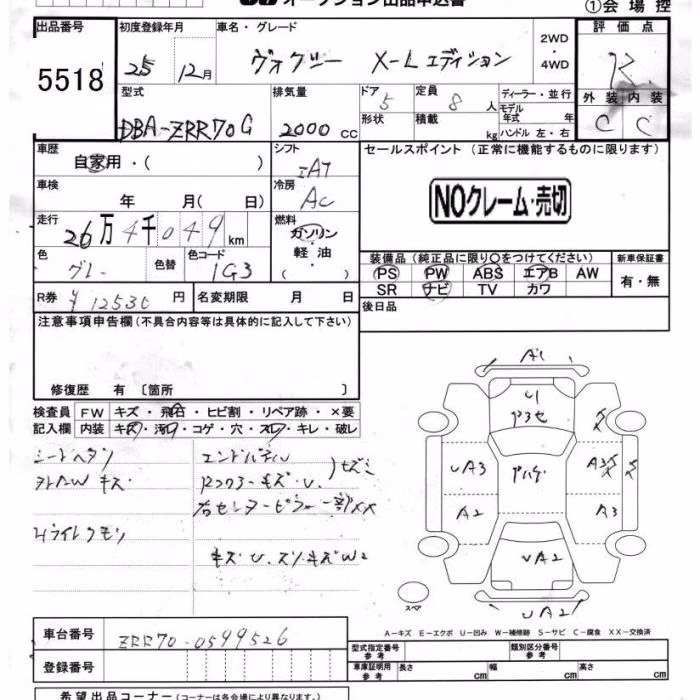 オークション出品申込書
①会場控
出品番号 初度登録年月 車名・グレード 2WD・4WD 評価点
5518 25 12月 ヴォクシー X-Lエディション R
型式 排気量 ドア 5 定員 8人 ディーラー・並行 外装 内装
DBA-ZRR70G 2000cc 形状 積載 kg モデル年式 年 C C
ハンドル 左・右
車歴 シフト セールスポイント(正常に機能するものに限ります)
自家用・( ) IAT
車検 年 月( 日) 冷房 AC NOクレーム・売切
走行 26万4千049km 燃料 ガソリン・軽油・( )
色 グレー 色替 色コード 1G3
装備品(純正品に限り○をつけてください) 新車保証書
PS PW ABS エアB AW 有・無
SR ナビ TV カワ
R券 ¥12530円 名変期限 月 日 後日品
注意事項申告欄(不具合内容等は具体的に記入して下さい)
修復歴 有 〔箇所 〕
検査員 FW キズ・飛石・ヒビ割・リペア跡・×要
記入欄 内装 キズ・汚れ・コゲ・穴・スレ・キレ・破レ
シートヘタリ
キズ
Hライトクモリ
A1
U1
UA3
A2
A3
A3
UA2
UA2
スペア
A-キズ E-エクボ U-凹み W-補修跡 S-サビ C-腐食 XX-交換済
車台番号 ZRR70-0599526
型式指定番号 参考 類別区分番号 参考
登録番号
車庫証明用 参考 長さ cm 幅 cm 高さ cm
希望出品コーナー(コーナーは各会場により異なります。)